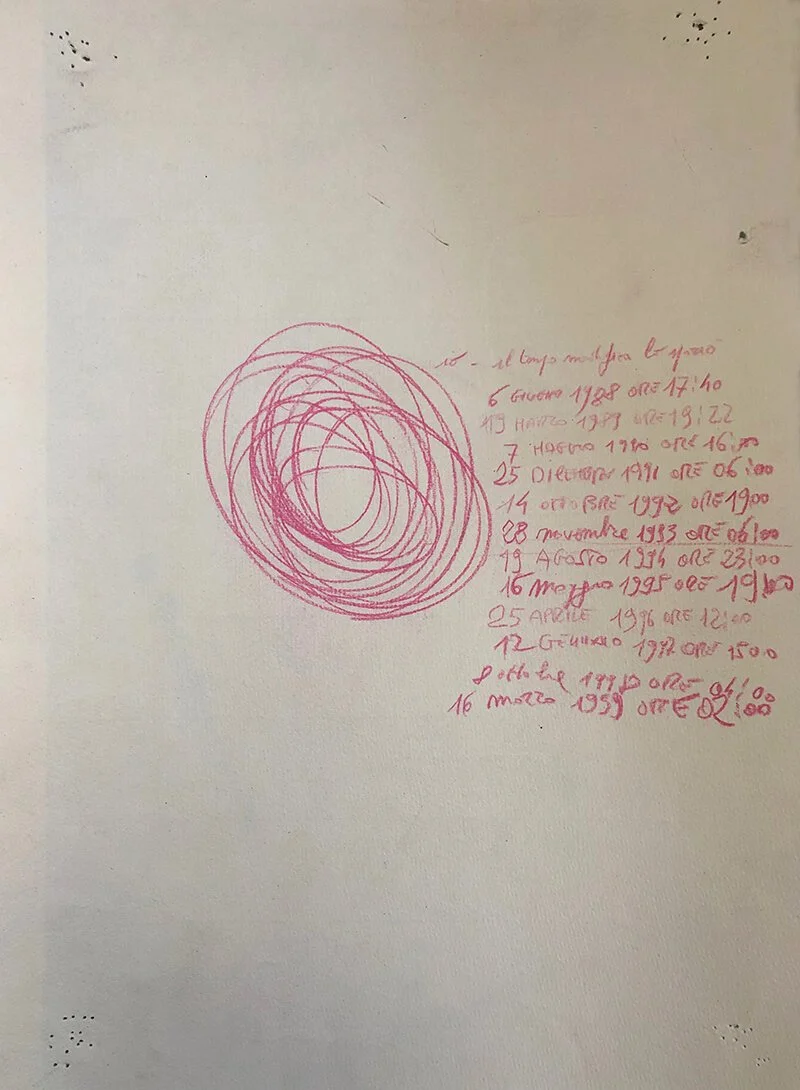 io - il tempo modifica lo spazio
6 GIUGNO 1988 ORE 17:40
19 MARZO 1989 ORE 19:22
7 MAGGIO 1990 ORE 16:00
25 DICEMBRE 1991 ORE 06:00
14 OTTOBRE 1992 ORE 19:00
28 novembre 1993 ORE 06:00
19 AGOSTO 1994 ORE 23:00
16 maggio 1995 ORE 19:00
25 APRILE 1996 ORE 12:00
12 GENNAIO 1997 ORE 15:00
8 ottobre 1998 ORE 04:00
16 marzo 1959 ORE 02:00